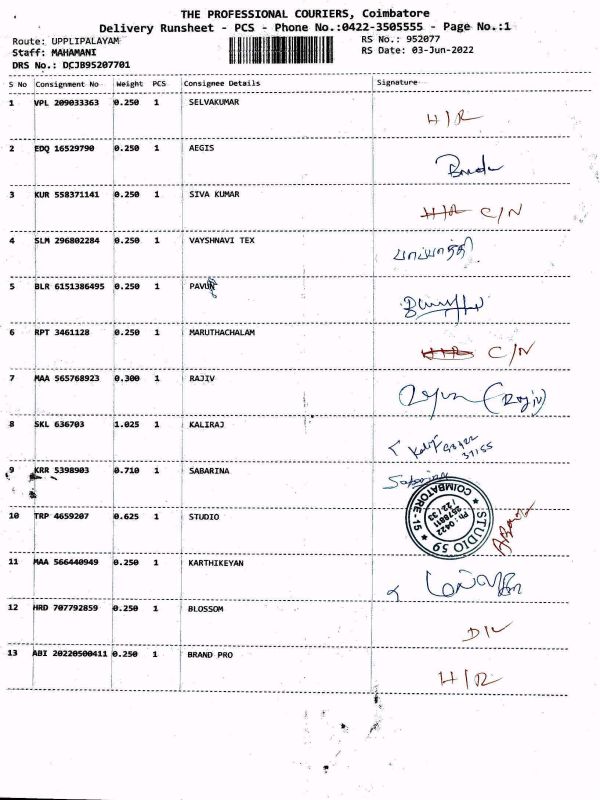 THE PROFESSIONAL COURIERS, Coimbatore
Delivery Runsheet - PCS - Phone No.:0422-3505555 - Page No.:1
Route: UPPLIPALAYAM RS No.: 952077
Staff: MAHAMANI RS Date: 03-Jun-2022
DRS No.: DCJB95207701
S No Consignment No Weight PCS Consignee Details Signature
1 VPL 209033363 0.250 1 SELVAKUMAR H/R
2 EDQ 16529790 0.250 1 AEGIS
3 KUR 558371141 0.250 1 SIVA KUMAR H/R C/N
4 SLM 296802284 0.250 1 VAYSHNAVI TEX
5 BLR 6151386495 0.250 1 PAVUN
6 RPT 3461128 0.250 1 MARUTHACHALAM H/R C/N
7 MAA 565768923 0.300 1 RAJIV (Rajiv)
8 SKL 636703 1.025 1 KALIRAJ
9 KRR 5398903 0.710 1 SABARINA Sabarina
10 TRP 4659207 0.625 1 STUDIO
STUDIO 59
COIMBATORE-15
Ph : 0422
2576811
/ 22 / 33
11 MAA 566440949 0.250 1 KARTHIKEYAN
12 HRD 707792859 0.250 1 BLOSSOM D/L
13 ABI 20220500411 0.250 1 BRAND PRO H/R